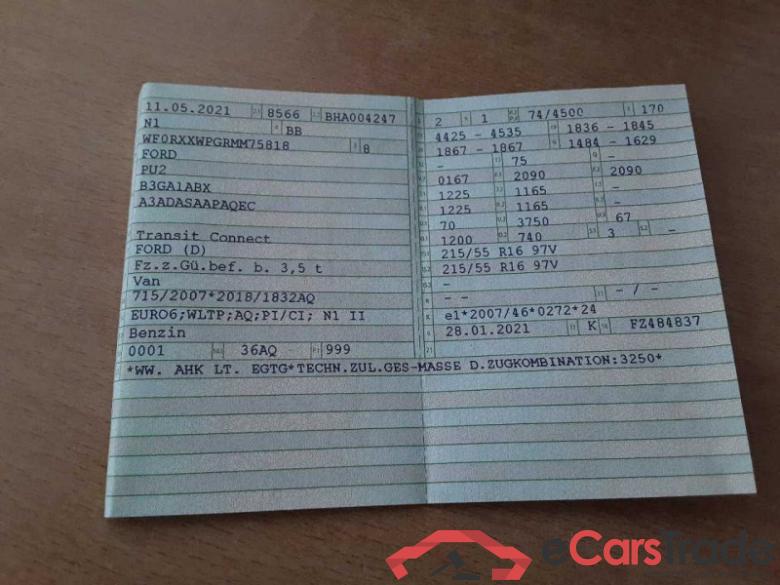 11.05.2021 8566 BHA004247
N1 BB
WF0RXXWPGRMM75818 8
FORD
PU2
B3GA1ABX
A3ADASAAPAQEC
Transit Connect
FORD (D)
Fz.z.Gü.bef. b. 3,5 t
Van
715/2007*2018/1832AQ
EURO6;WLTP;AQ;PI/CI; N1 II
Benzin
0001 36AQ 999
*WW. AHK LT. EGTG*TECHN.ZUL.GES-MASSE D.ZUGKOMBINATION:3250*
2 1 74/4500 170
4425 - 4535 1836 - 1845
1867 - 1867 1484 - 1629
- 75 -
0167 2090 2090
1225 1165 -
1225 1165 -
70 3750 67
1200 740 3 -
215/55 R16 97V
215/55 R16 97V
-
- - - / -
e1*2007/46*0272*24
28.01.2021 K FZ484837
eCarsTrade